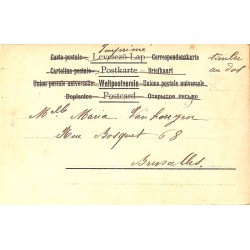 Imprimé
Carte postale — Levelező-Lap — Correspondenzkarte
timbre
Cartolina postale — Postkarte — Briefkaart
au dos
Union postale universelle. Weltpostverein Unione postale universale
Dopisnice — Postcard — Открытое письмо
Mlle Maria Van
Rue Bosquet 68
Bruxelles.